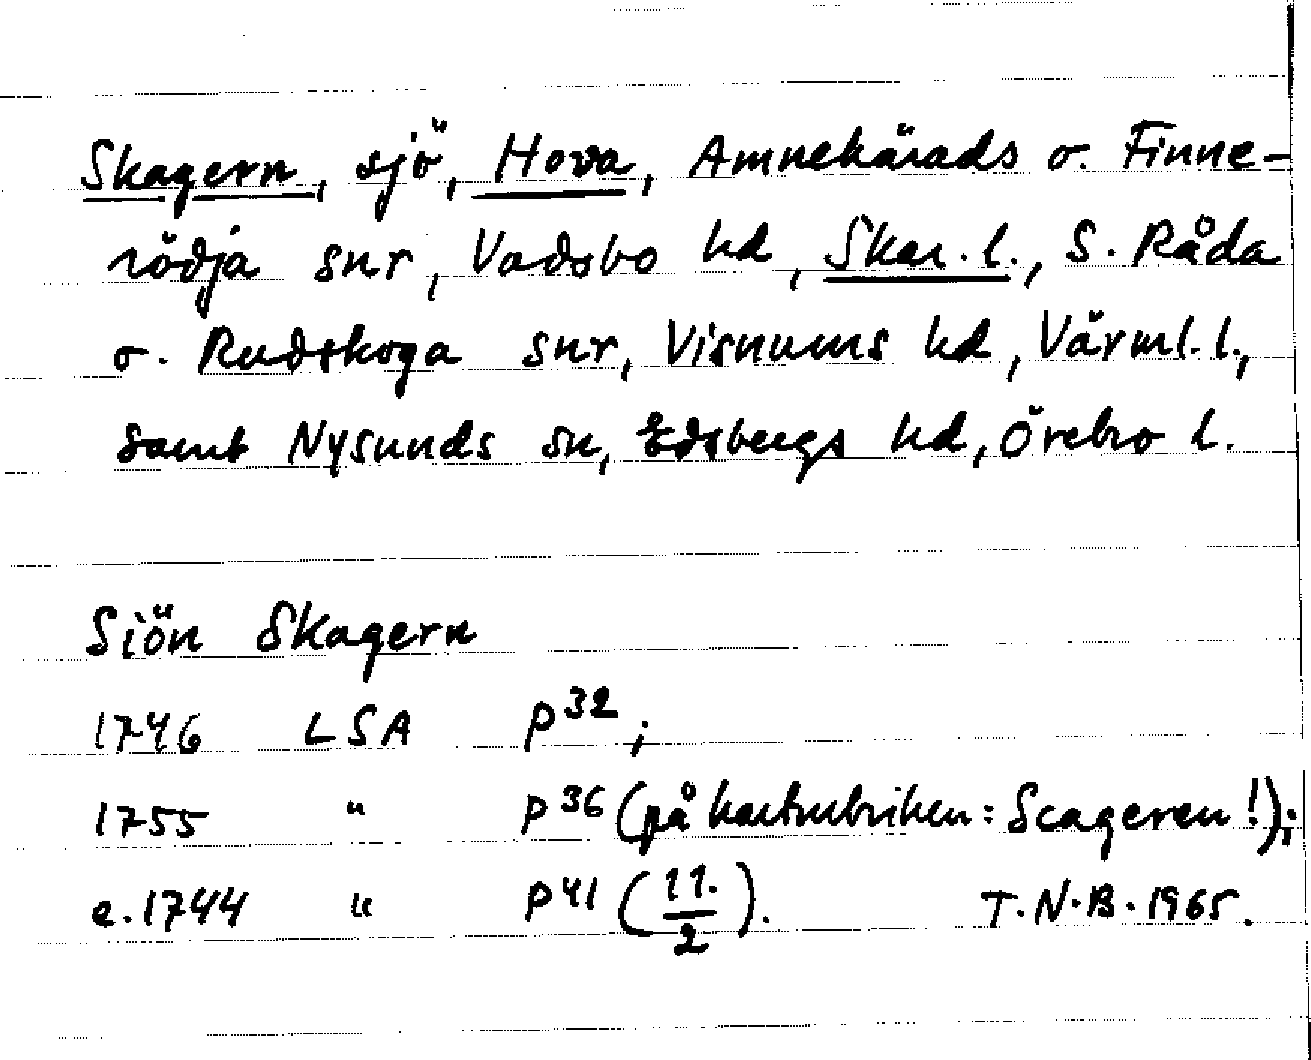 Skagern, sjö, Hova, Amnehärads o. Finne-
rödja snr, Vadsbo hd, Skar. l., S. Råda
o. Rudskoga snr, Visnums hd, Värml. l.,
samt Nysunds sn, Edsbergs hd, Örebro l.
Siön Skagern
1746 LSA P32;
1755 " P36 (på kartrubriken: Scageren!);
e. 1744 " P41 (11./2). T.N.B. 1965.